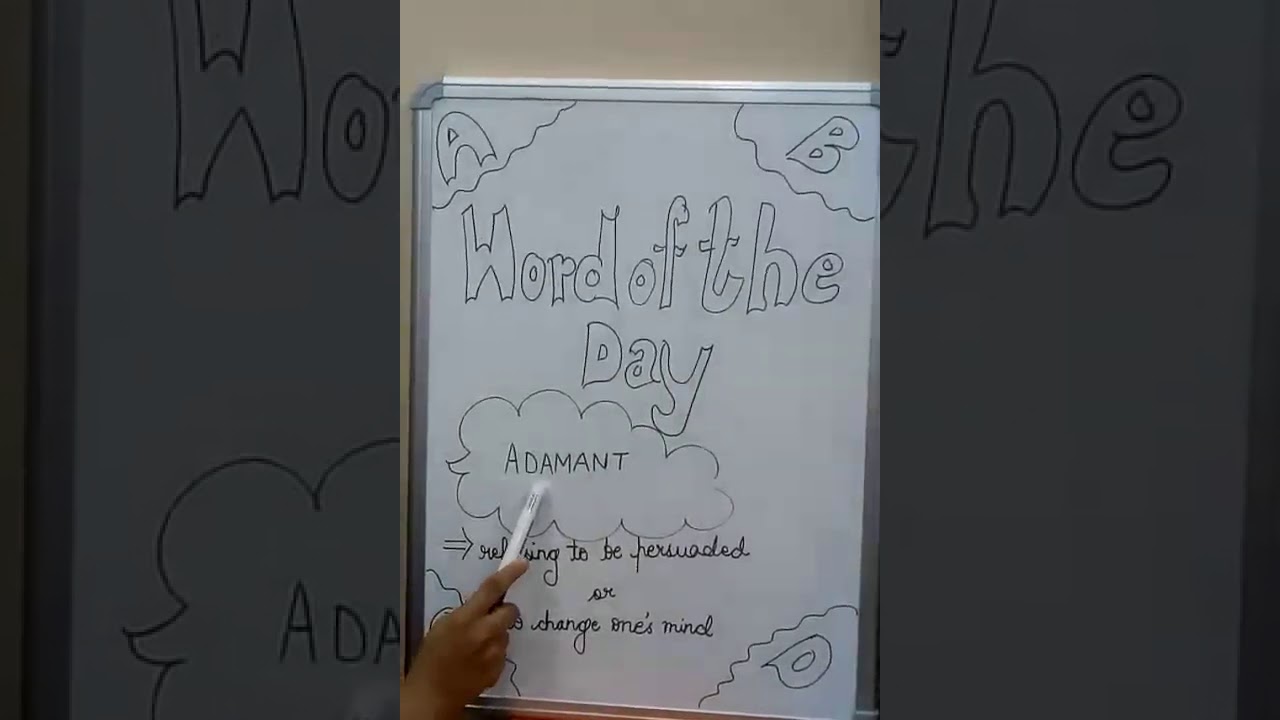 A B
Word of the
Day
ADAMANT
⇒ refusing to be persuaded
or
to change one's mind
D